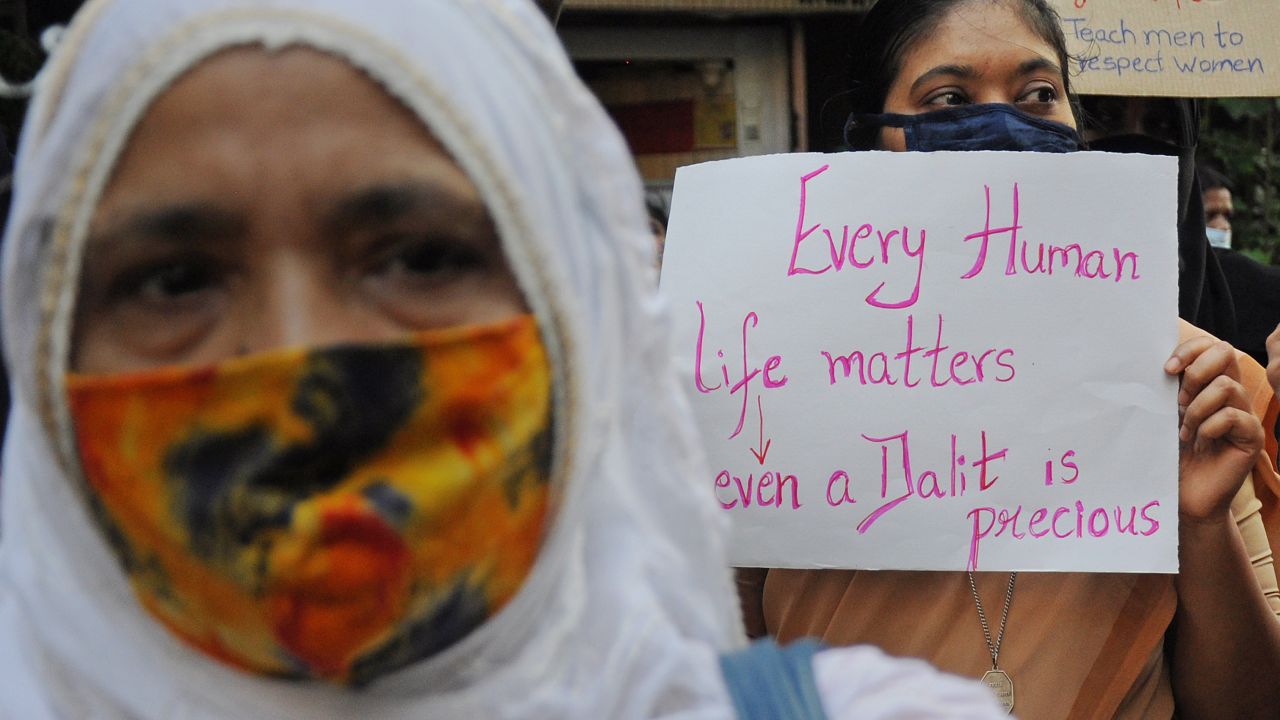 Every Human
life matters
even a Dalit is
precious
Teach men to
respect women